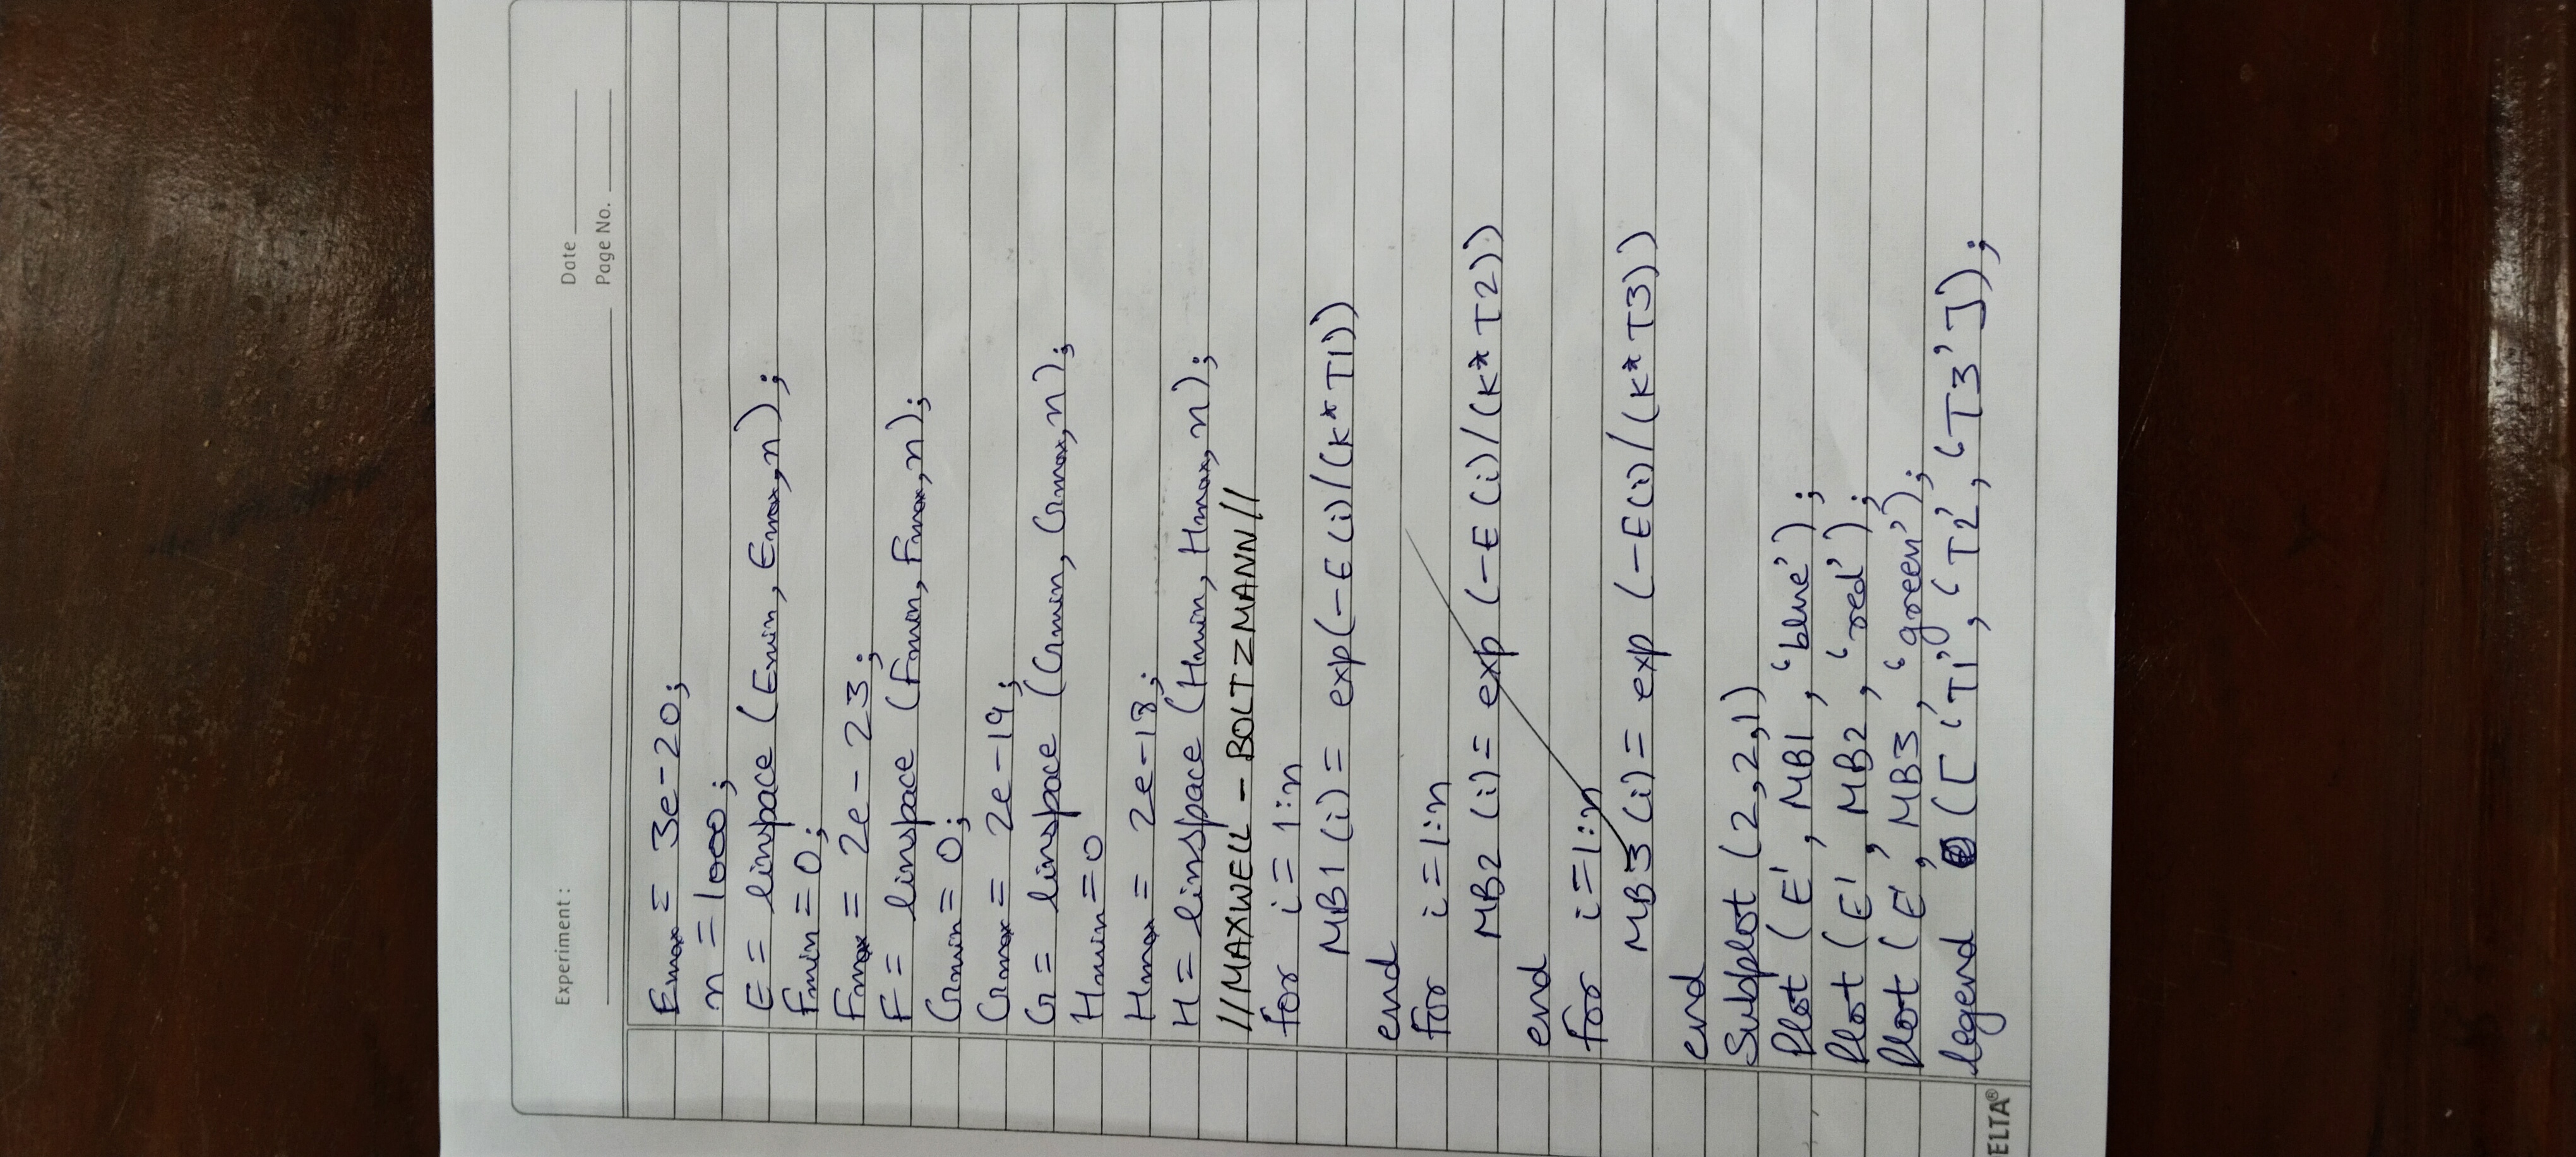 Experiment :
Date
Page No.
Emax = 3e-20;
n = 1000;
E = linspace (Emin, Emax,n);
Fmin = 0;
Fmax = 2e-23;
F = linspace (Fmin, Fmax,n);
Gmin = 0;
Gmax = 2e-19;
G = linspace (Gmin, Gmax,n);
Hmin=0
Hmax = 2e-18;
H = linspace (Hmin, Hmax, n);
//MAXWELL - BOLTZMANN//
for i = 1:n
MB1 (i) = exp(-E(i)/(K*T1))
end
for i=1:n
MB2 (i) = exp (-E(i)/(K*T2))
end
for i=1:n
MB3 (i) = exp (-E(i)/(K*T3))
end
Subplot (2,2,1)
Plot (E', MB1, 'blue');
Plot (E', MB2, 'red');
Plot (E', MB3, 'green');
legend (['T1', 'T2', 'T3']);
ELTA®